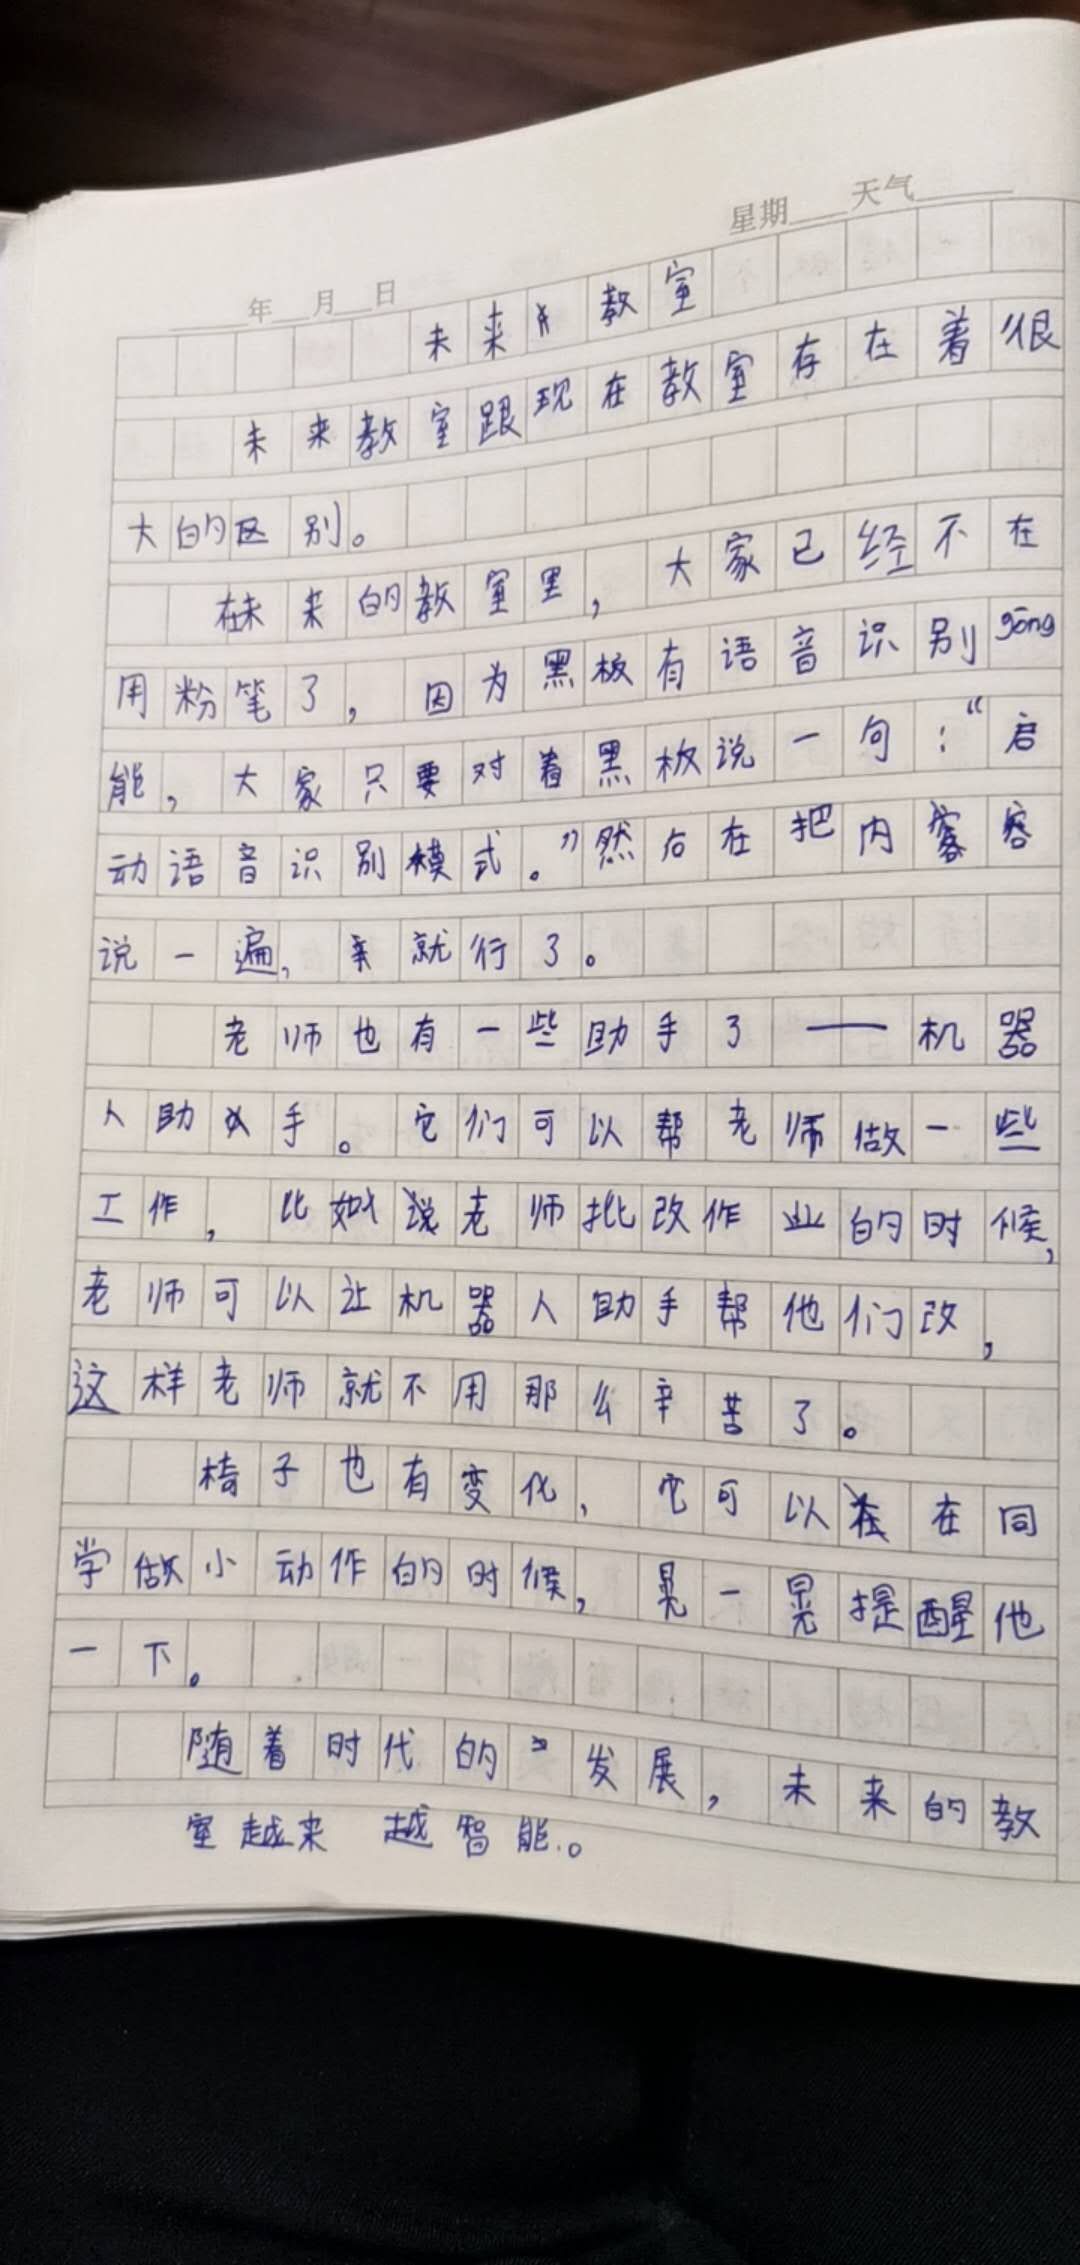 星期 天气
年 月 日
未来教室
未来教室跟现在教室存在着很
大的区别。
在未来的教室里，大家已经不在
用粉笔了，因为黑板有语音识别gōng
能，大家只要对着黑板说一句：“启
动语音识别模式。”然后在把内容
说一遍，就行了。
老师也有一些助手了——机器
人助手。它们可以帮老师做一些
工作，比如说老师批改作业的时候，
老师可以让机器人助手帮他们改，
这样老师就不用那么辛苦了。
椅子也有变化，它可以在同
学做小动作的时候，晃一晃提醒他
一下。
随着时代的发展，未来的教
室越来越智能。